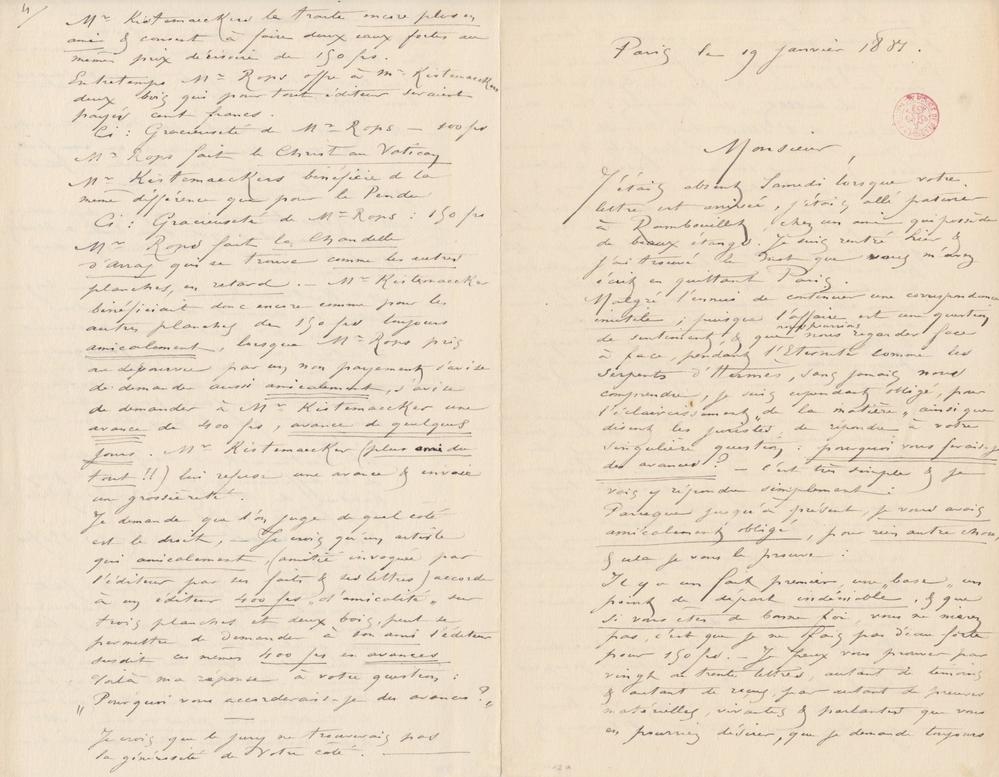 Paris le 19 Janvier 1887.
Monsieur,
J'étais absent Samedi lorsque votre
lettre est arrivée, j'étais allé patiner
à Rambouillet, chez un ami qui possède
de beaux étangs. Je suis rentré hier &
j'ai trouvé le que vous m'avez
écrit en quittant Paris.
Malgré l'ennui de continuer une correspondance
inutile ; puisque l'affaire est une question
de sentiment, & que nous pourrions nous regarder face
à face, pendant l'Eternité comme les
Serpents d'Hermès, sans jamais nous
comprendre, je suis cependant obligé, pour
l'éclaircissement „de la matière„ ainsi que
disent les juristes, de répondre à votre
singulière question : pourquoi vous ferais-je
des avances ? – C'est très simple & je
vais y répondre simplement :
Parceque jusqu'à présent, je vous avais
amicalement obligé, pour rien autre chose,
& cela je vous le prouve :
Il y a un fait premier, une „base„ un
point de départ indéniable, & que
si vous êtes de bonne foi, vous ne nierez
pas, c'est que je ne fais pas d'eau forte
pour 150 frs. – Je peux vous prouver par
vingt ou trente lettres, autant de témoins
& autant de reçus, par autant de preuves
matérielles, vivantes & parlantes que vous
en pourrez désirer, que je demande toujours
4/
Mr Kistemaeckers le traite encore plus en
ami & consent à faire deux eaux fortes au
même prix dérisoire de 150 frs.
Entretemps Mr Rops offre à Mr Kistemaeckers
deux bois qui pour tout éditeur seraient
payés cent francs.
Ci : Gracieuseté de Mr Rops – 100 frs
Mr Rops fait le Christ au Vatican
Mr Kistemaeckers bénéficie de la
même différence que pour le Pendu
Ci : Gracieuseté de Mr Rops : 150 frs
Mr Rops fait la Chandelle
d'Arras qui se trouve comme les autres
planches, en retard. – Mr Kistemaeckers
bénéficiait donc encore comme pour les
autres planches des 150 frs toujours
amicalement, lorsque Mr Rops pris
au dépourvu par un non payement s'avise
de demander aussi amicalement, s'avise
de demander à Mr Kistemaeckers une
avance de 400 frs, avance de quelques
jours. Mr Kistemaecker (plus ami du
tout !!) lui refuse une avance & envoie
une grossièreté.
Je demande que l'on juge de quel coté
est le droit, – Je crois qu'un artiste
qui amicalement, (amitié invoquée par
l'éditeur par ses faits & ses lettres) accorde
à un éditeur 400 frs „d'amicalité„ sur
trois planches et deux bois, peut se
permettre de demander à son ami l'éditeur
susdit ces mêmes 400 frs en avances
Voilà ma réponse à votre question :
„Pourquoi vous accorderais-je des avances ?„
Je crois que le jury ne trouverait pas
la générosité de votre coté.